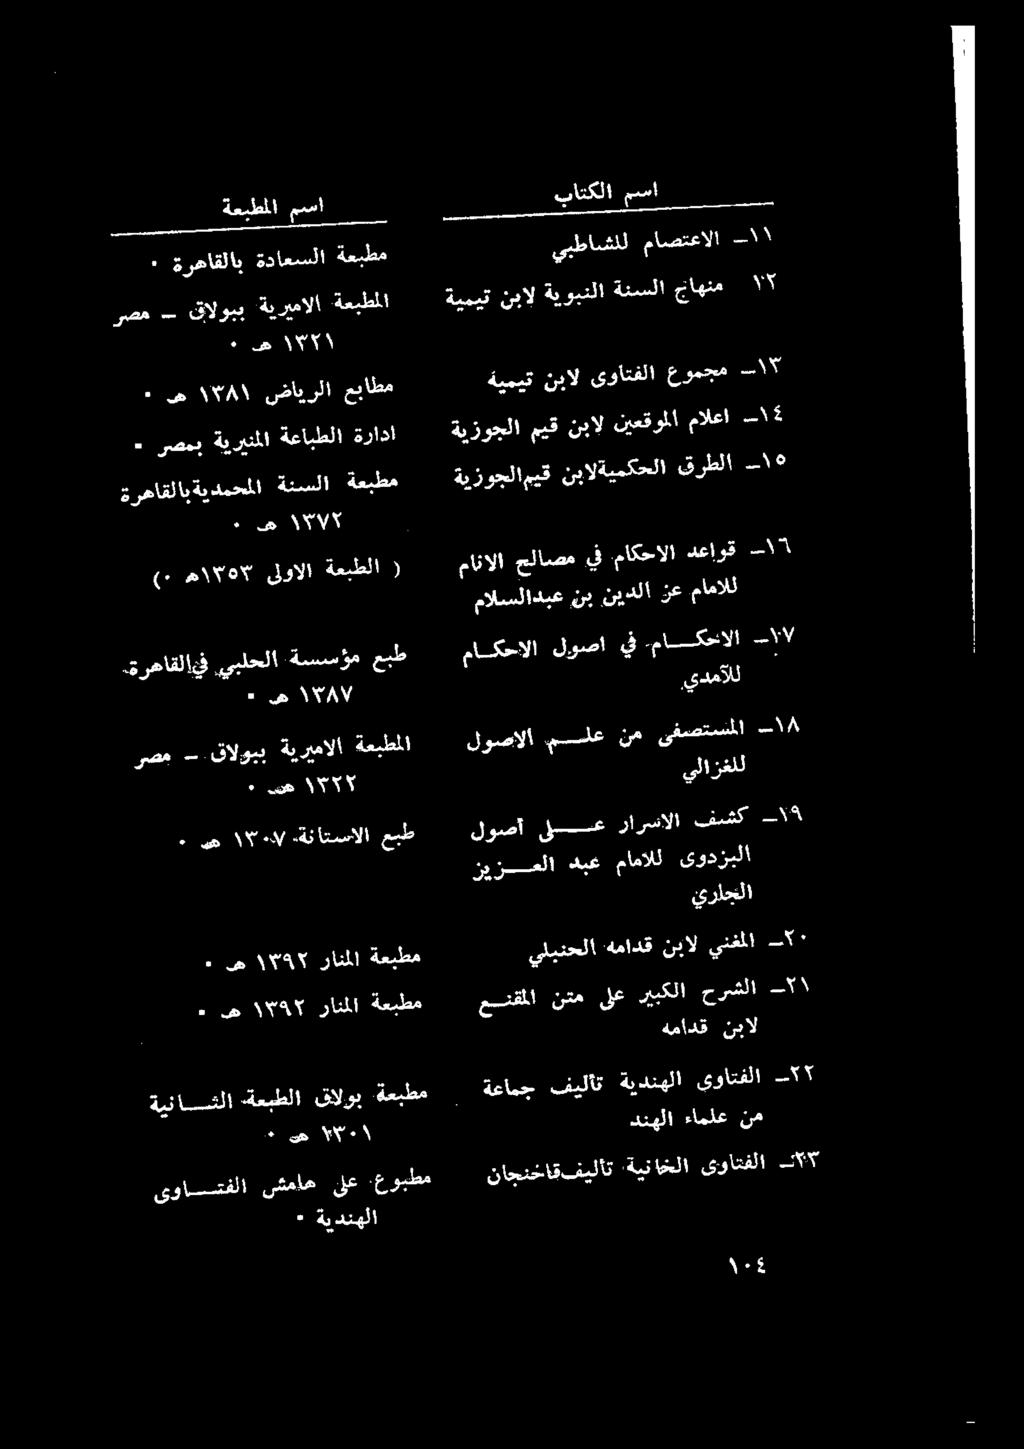 اسم الكتاب اسم المطبعة
١١ـ الاعتصام للشاطبي مطبعة السعادة بالقاهرة ٠
١٢ منهاج السنة النبوية لابن تيمية المطبعة الاميرية ببولاق ـ مصر
١٣٢١ هـ ٠
١٣ـ مجموع الفتاوى لابن تيمية مطابع الرياض ١٣٨١ هـ ٠
١٤ـ اعلام الموقعين لابن قيم الجوزية ادارة الطباعة المنيرية بمصر ٠
١٥ـ الطرق الحكمية لابن قيم الجوزية مطبعة السنة المحمدية بالقاهرة
١٣٧٢ هـ ٠
١٦ـ قواعد الاحكام في مصالح الانام ( الطبعة الاولى ١٣٥٣هـ ٠)
للامام عز الدين بن عبدالسلام
١٧ـ الاحكام في اصول الاحكام طبع مؤسسة الحلبي في القاهرة
للآمدي ١٣٨٧ هـ ٠
١٨ـ المستصفى من علم الاصول المطبعة الاميرية ببولاق ـ مصر
للغزالي ١٣٢٢ هـ ٠
١٩ـ كشف الاسرار على أصول طبع الاستانة ١٣٠٧ هـ ٠
البزدوى للامام عبد العزيز
٢٠ـ المغني لابن قدامه الحنبلي مطبعة المنار ١٣٩٢ هـ ٠
٢١ـ الشرح الكبير على متن المقنع مطبعة المنار ١٣٩٢ هـ ٠
لابن قدامه
٢٢ـ الفتاوى الهندية تأليف جماعة مطبعة بولاق الطبعة الثانية
من علماء الهند ١٣٠١ هـ ٠
٢٣ـ الفتاوى الخانية تأليف قاضخان مطبوع على هامش الفتاوى
الهندية ٠
١٠٤